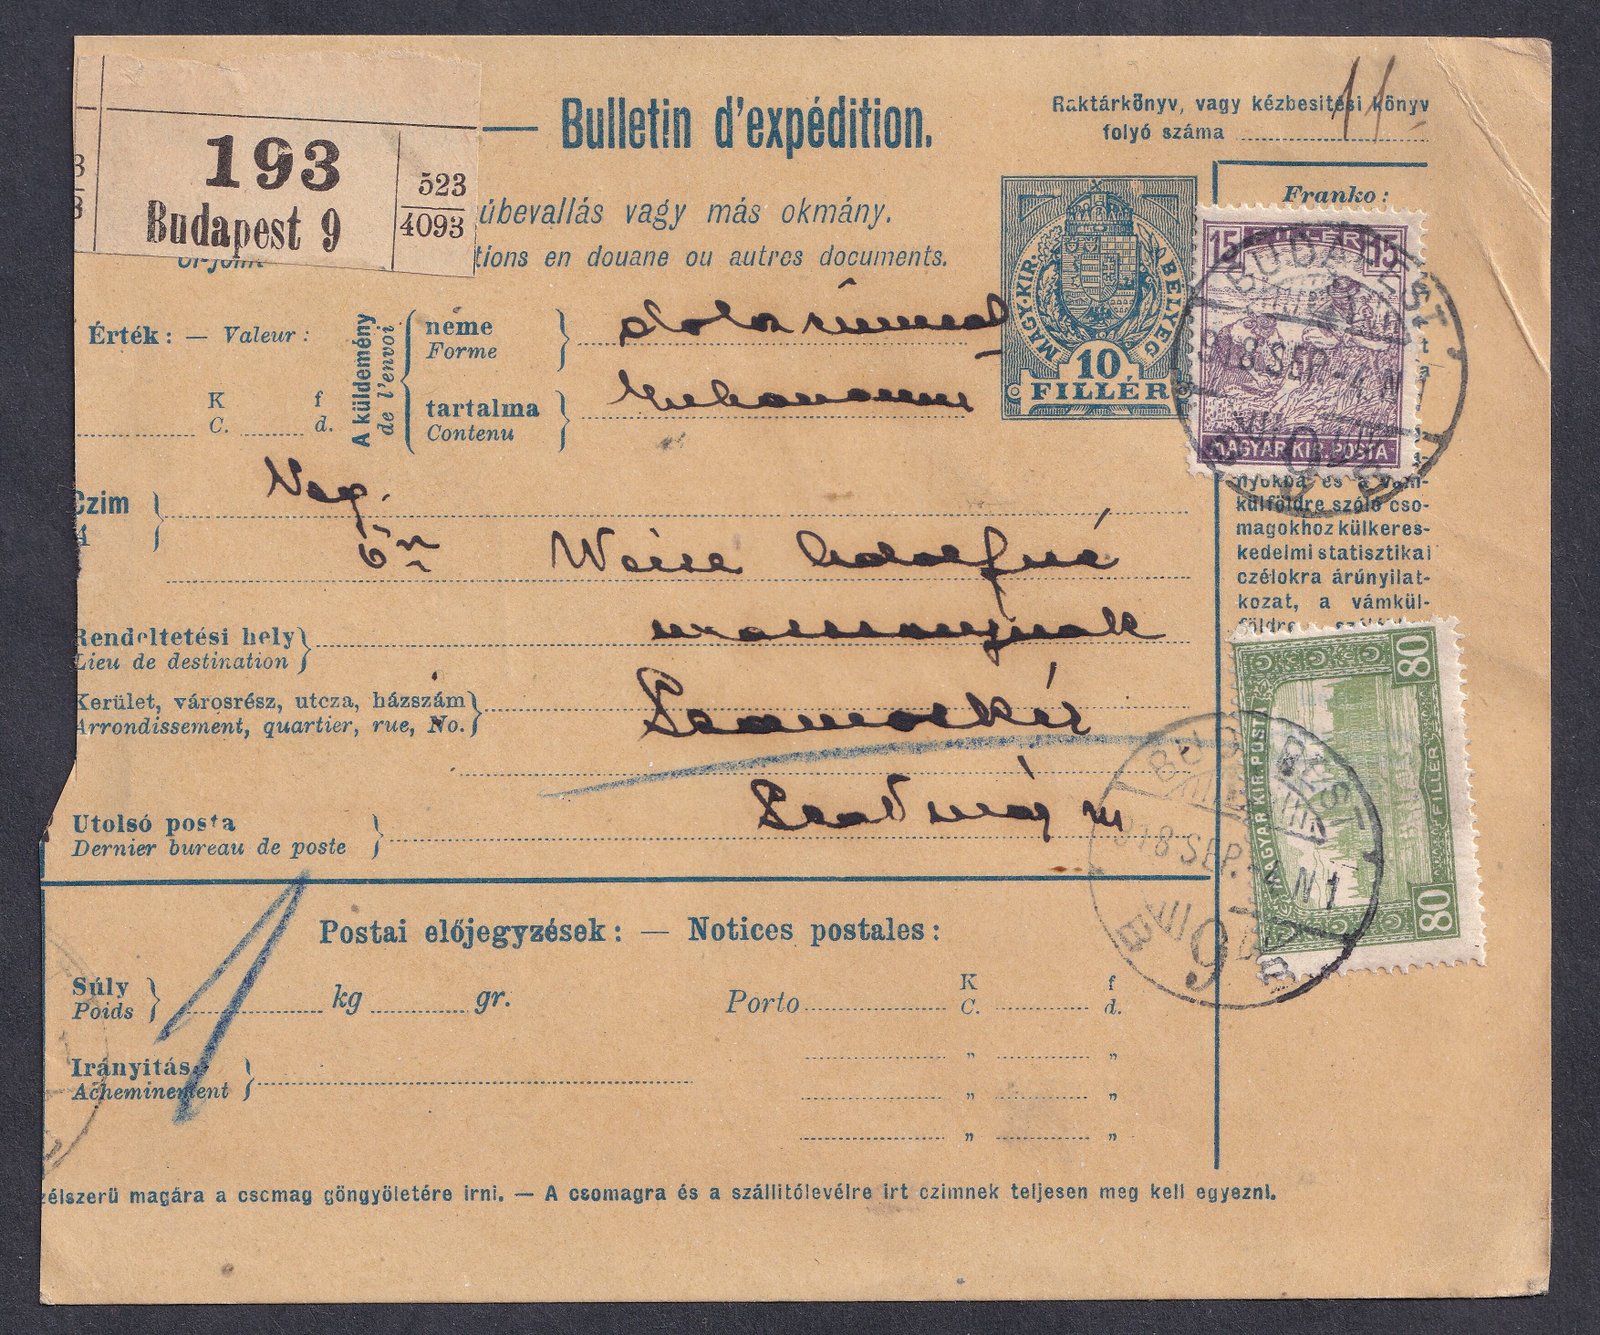 193
Budapest 9
523
4093
— Bulletin d'expédition.
Raktárkönyv, vagy kézbesitési könyv
folyó száma
11.
úbevallás vagy más okmány.
tions en douane ou autres documents.
Franko:
MAGY. KIR. BÉLYEG
10
FILLÉR
15 15
MAGYAR KIR. POSTA
BUDAPEST
918 SEP -4 N1
9
Érték: — Valeur:
K f
C. d.
A küldemény
de l'envoi
neme
Forme
tartalma
Contenu
Czim
Weisz Adolfné
Rendeltetési hely
Lieu de destination
Kerület, városrész, utcza, házszám
Arrondissement, quartier, rue, No.
Szamoskér
Szatmár m
Utolsó posta
Dernier bureau de poste
nyokba és a vám-
külföldre szóló cso-
magokhoz külkeres-
kedelmi statisztikai
czélokra árúnyilat-
kozat, a vámkül-
80 80
MAGYAR KIR. POSTA
FILLÉR
BUDAPEST
918 SEP. N1
9
Postai előjegyzések: — Notices postales:
Súly
Poids
kg gr.
Porto
K f
C. d.
" "
" "
" "
Irányitás
Acheminement
zélszerü magára a csomag göngyöletére irni. — A csomagra és a szállitólevélre irt czimnek teljesen meg kell egyezni.